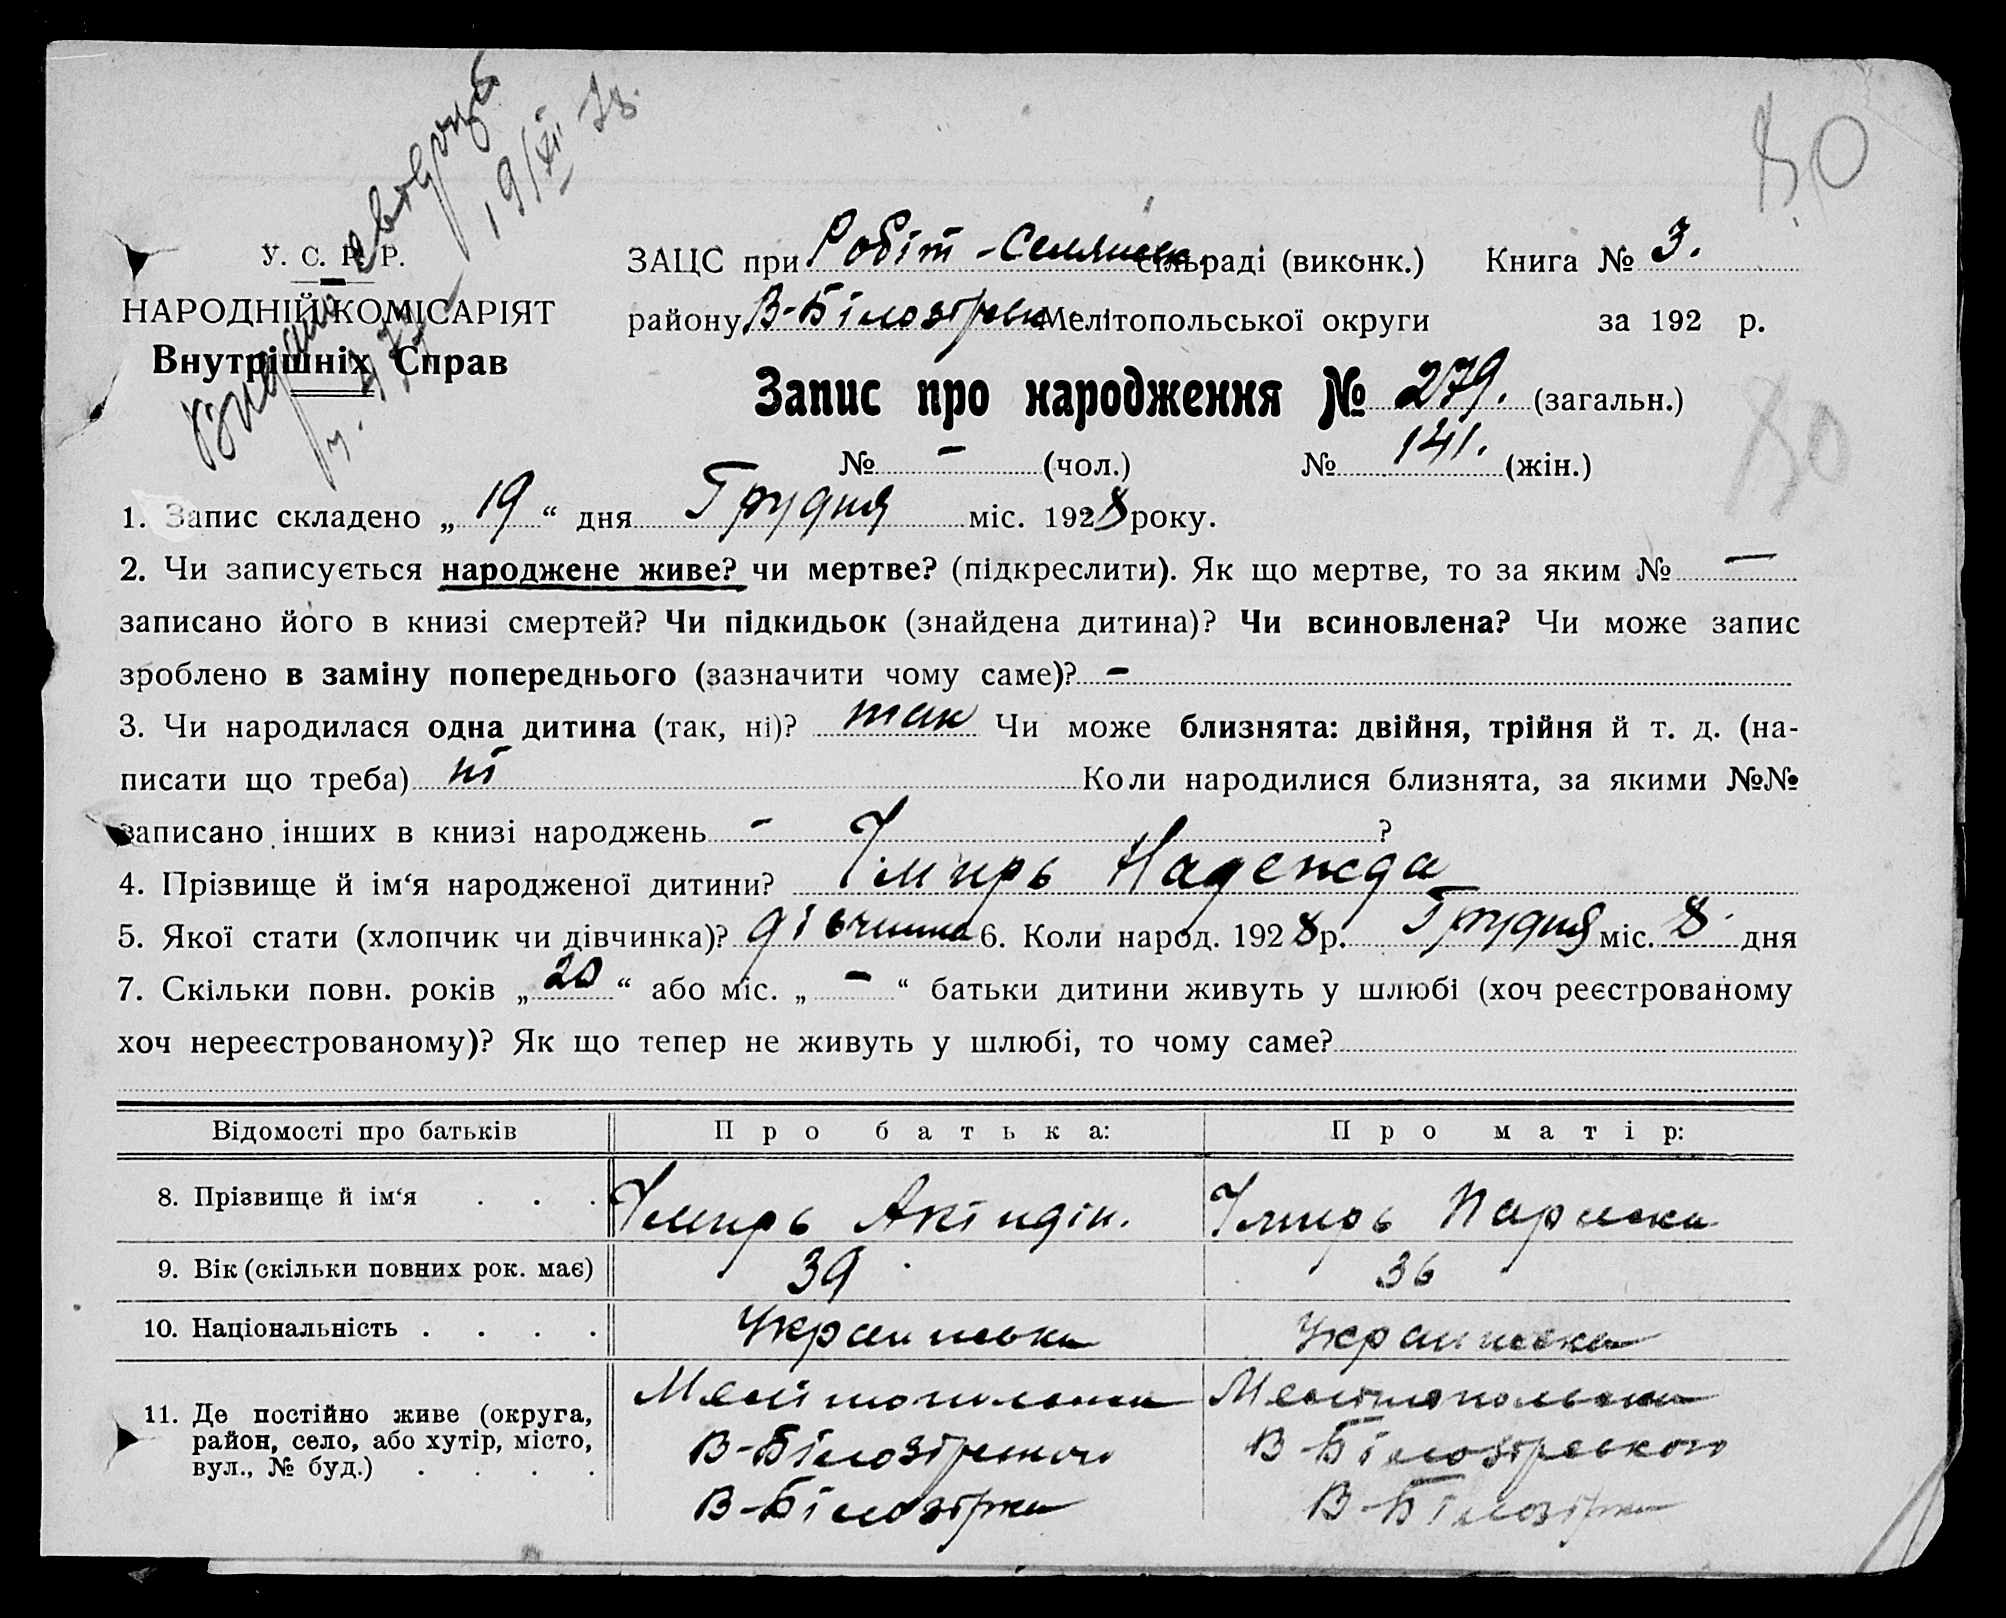 80
19/XI 78.
У. С. Р. Р.
НАРОДНІЙ КОМІСАРІЯТ
Внутрішніх Справ
ЗАЦС при Робіт-Селянськ. сільраді (виконк.) Книга № 3.
району В-Білозірськ Мелітопольської округи за 192 р.
Запис про народження № 279. (загальн.)
80
№ – (чол.) № 141. (жін.)
1. Запис складено „ 19 “ дня Грудня міс. 1928 року.
2. Чи записується народжене живе? чи мертве? (підкреслити). Як що мертве, то за яким № –
записано його в книзі смертей? Чи підкидьок (знайдена дитина)? Чи всиновлена? Чи може запис
зроблено в заміну попереднього (зазначити чому саме)? –
3. Чи народилася одна дитина (так, ні)? так Чи може близнята: двійня, трійня й т. д. (на-
писати що треба) ні Коли народилися близнята, за якими №№
записано інших в книзі народжень – ?
4. Прізвище й ім‘я народженої дитини? Надежда
5. Якої стати (хлопчик чи дівчинка)? дівчинка 6. Коли народ. 1928 р. Грудня міс. 8 дня
7. Скільки повн. років „ 20 “ або міс. „ – “ батьки дитини живуть у шлюбі (хоч реєстрованому
хоч нереєстрованому)? Як що тепер не живуть у шлюбі, то чому саме?
Відомості про батьків Про батька: Про матір:
8. Прізвище й ім‘я . . . Акіндін.
9. Вік (скільки повних рок. має) 39 36
10. Національність . . . . Украинська Украинська
11. Де постійно живе (округа,
район, село, або хутір, місто,
вул., № буд.) . . . .
Мелітопольська Мелітопольська
В-Білозірського В-Білозірського
В-Білозірка В-Білозірка